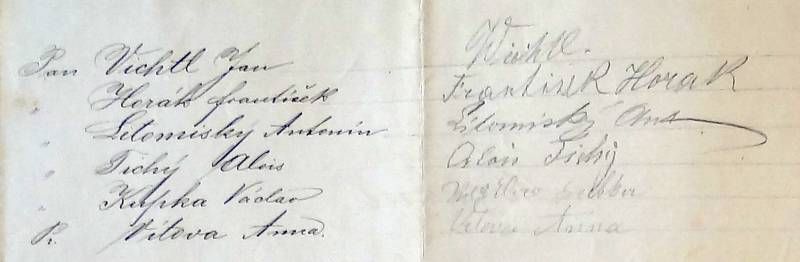 Pan Vichtl Jan
" Horák František
" Litomiský Antonín
" Tichý Alois
" Kupka Václav
Pí. Vítova Anna.
Wichtl.
František Horak
Litomiský Ant
Alois Tichý
Vítova Anna